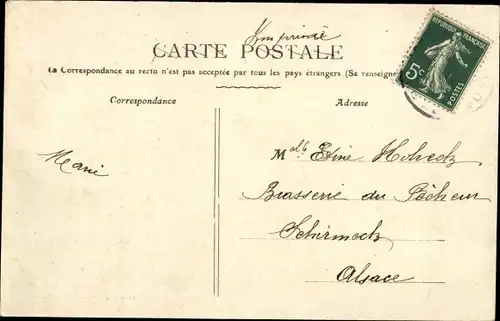 Imprimé
CARTE POSTALE
La Correspondance au recto n'est pas acceptée par tous les pays étrangers (Se renseigne
REPUBLIQUE FRANÇAISE
5c
POSTES
Correspondance
Adresse
Marie
Mdlle Estine Holveck
Brasserie du Pêcheur
Schirmeck
Alsace